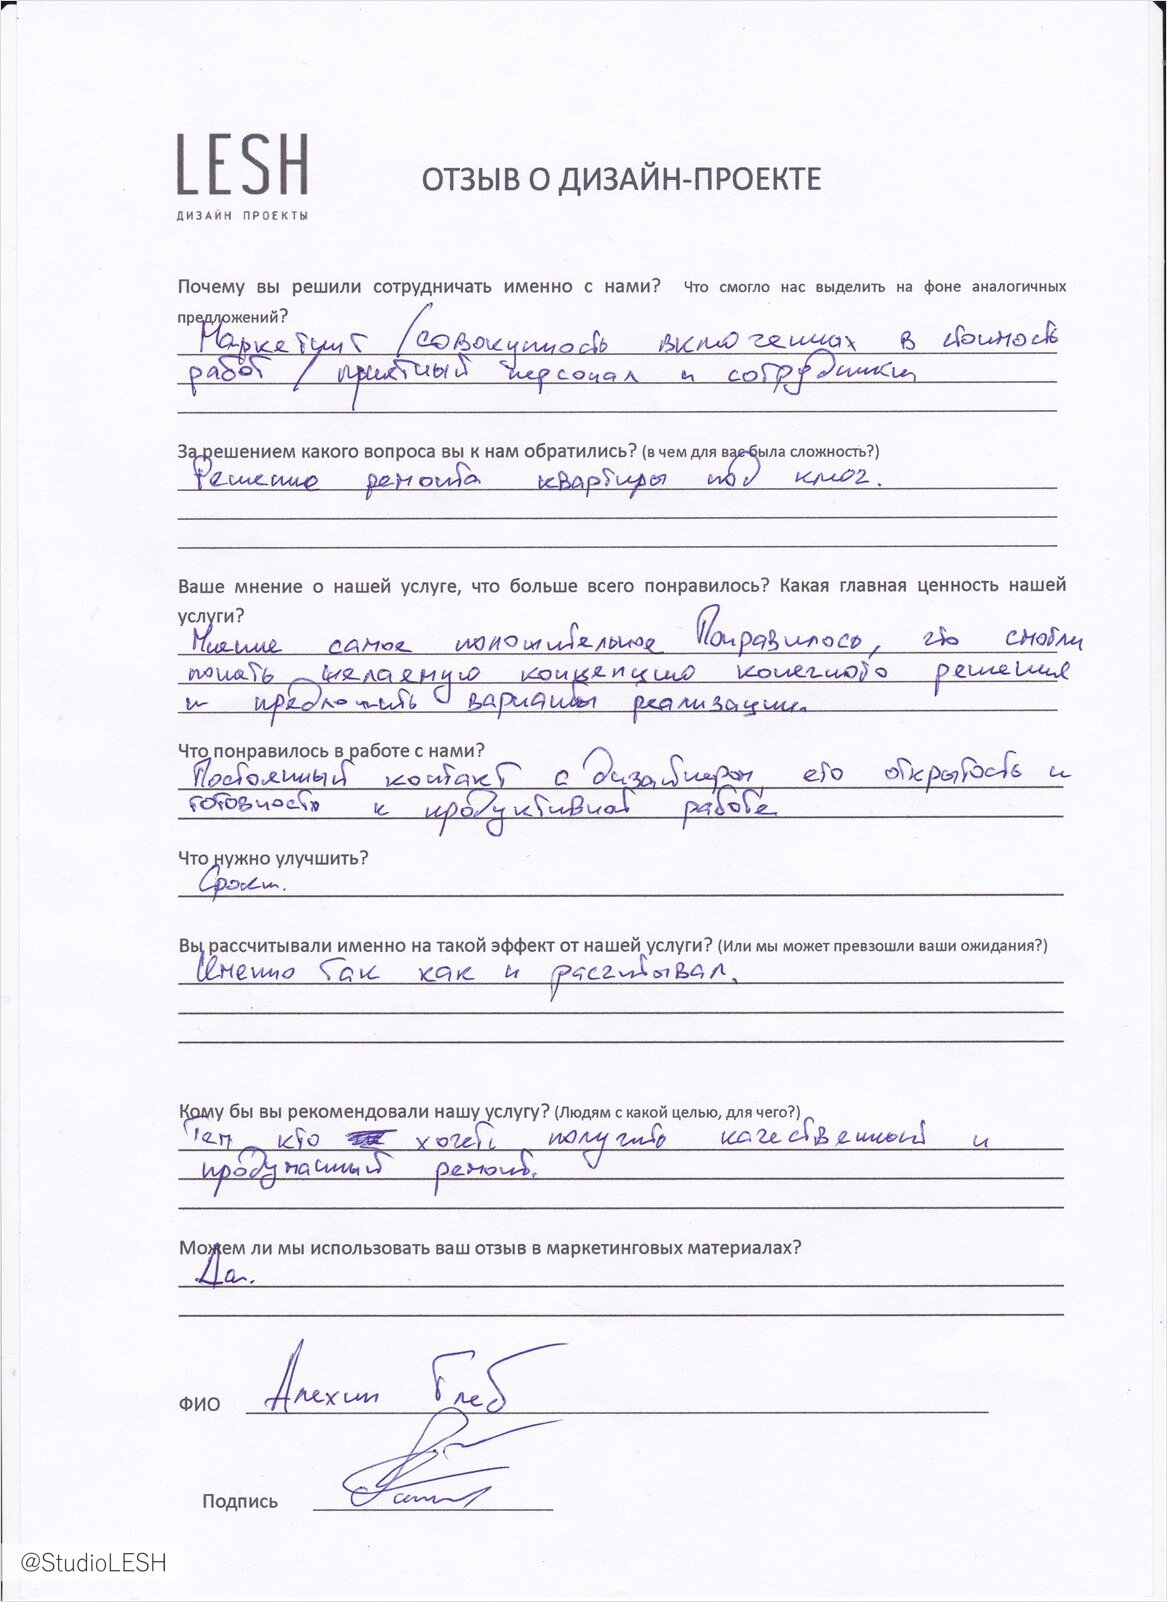 LESH
ДИЗАЙН ПРОЕКТЫ
ОТЗЫВ О ДИЗАЙН-ПРОЕКТЕ
Почему вы решили сотрудничать именно с нами? Что смогло нас выделить на фоне аналогичных
предложений?
Маркетинг / совокупность включенных в стоимость
работ / приятный персонал и сотрудники
За решением какого вопроса вы к нам обратились? (в чем для вас была сложность?)
Решение ремонта квартиры под ключ.
Ваше мнение о нашей услуге, что больше всего понравилось? Какая главная ценность нашей
услуги?
Мнение самое положительное Понравилось, что смогли
понять желаемую концепцию конечного решения
и предложить варианты реализации.
Что понравилось в работе с нами?
Постоянный контакт с дизайнером его открытость и
готовность к продуктивной работе
Что нужно улучшить?
Сроки.
Вы рассчитывали именно на такой эффект от нашей услуги? (Или мы может превзошли ваши ожидания?)
Именно так как и расчитывал.
Кому бы вы рекомендовали нашу услугу? (Людям с какой целью, для чего?)
Тем кто хочет получить качественный и
продуманный ремонт.
Можем ли мы использовать ваш отзыв в маркетинговых материалах?
Да.
ФИО Алехин Глеб
Подпись
@StudioLESH